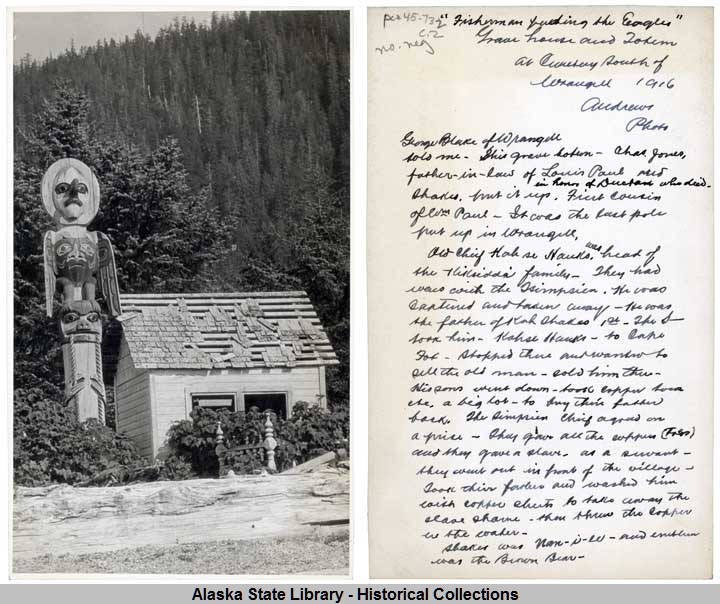 pca 45-732
c.2
no. neg
"Fisherman feeding the Eagles"
Grave house and Totem
at Cemetery South of
Wrangell 1916
Andrews
Photo
George Blake of Wrangell
told me - This grave totem - Chas Jones,
father-in-law of Louis Paul
in honor of who died.
Shakes, put it up. First cousin
of Wm Paul - It was the last pole
put up in Wrangell,
Old Chief Kah se Hauks, was head of
the family - They had
wars with the Tsimpsien. He was
captured and taken away - He was
the father of Kah Shakes 1st - The
took him - to Cape
Fox - stopped there and wanted to
sell the old man - sold him there -
His sons went down - took copper
etc, a big lot - to buy their father
back. The Simpsien Chief agreed on
a price - They gave all the coppers
and they gave a slave, as a servant -
they went out in front of the village -
Took their father and washed him
with copper sheets to take away the
slave shame - then threw the copper
in the water -
Shakes was - and emblem
was the Brown Bear -
Alaska State Library - Historical Collections